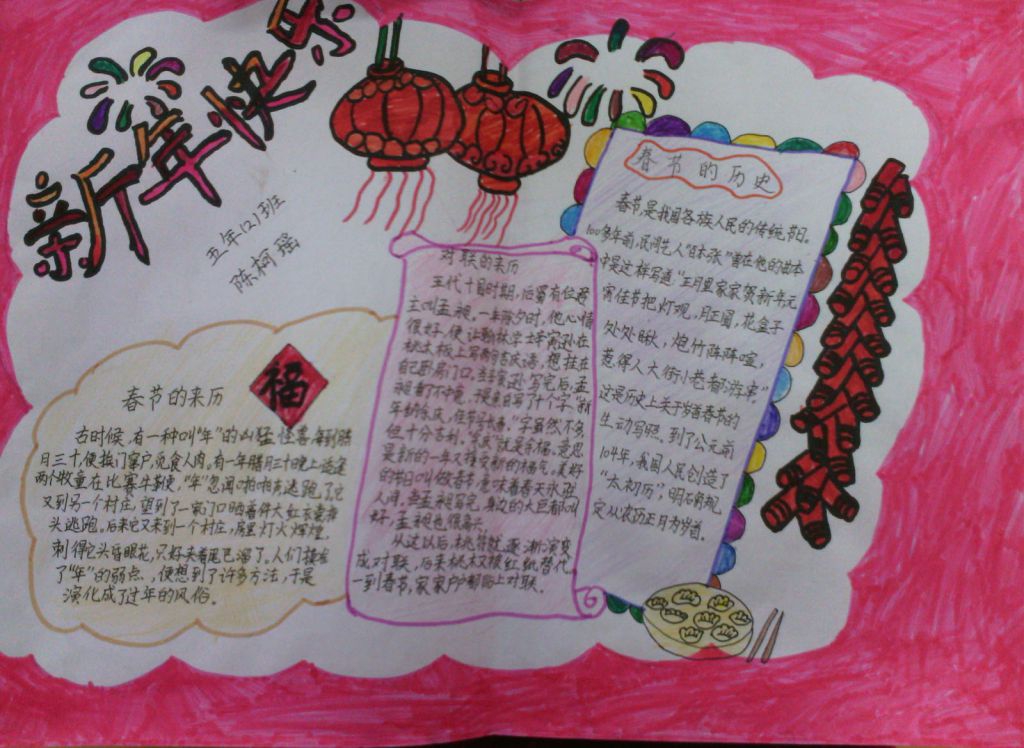 新年快乐
五年(2)班
陈柯瑶
春节的来历
古时候,有一种叫"年"的凶猛怪兽,每到腊
月三十,便挨门窜户,觅食人肉。有一年腊月三十晚上
两个牧童在比赛牛鞭,"年"忽闻啪啪声逃跑了,它
又到另一个村庄,望到了一家门口晒着件大红衣裳
头逃跑。后来它又来到一个村庄,屋里灯火辉煌,
刺得它头昏眼花,只好夹着尾巴溜了。人们摸准
了"年"的弱点,便想到了许多方法,于是
演化成了过年的风俗。
福
对联的来历
五代十国时期,后蜀有位君
主叫孟昶,一年除夕时,他心情
很好,便让翰林学士辛寅逊在
桃木板上写两句吉庆语,想挂在
自己卧房门口,辛寅逊写完后,孟
昶看了不中意,于是亲自写了十个字,"新
年纳余庆,佳节号长春,"字虽然不多,
但十分吉利,"余庆"就是幸福,意思
是新的一年又接受新的福气,美好
的节日叫做春节意味着春天永驻
人间,当孟昶写完,身边的大臣都叫
好,孟昶也很高兴。
从这以后,桃符就逐渐演变
成对联,后来桃木又被红纸替代
一到春节,家家户户都贴上对联。
春节的历史
春节,是我国各族人民的传统节日。
100多年前,民间艺人"百本张"曾在他的曲本
中是这样写道"正月里家家贺新年元
宵佳节把灯观,月正圆,花盒子
处处瞅,炮竹阵阵喧,
惹得人大街小巷都游串"
这是历史上关于岁首春节的
生动写照,到了公元前
104年,我国人民创造了
"太初历",明确规
定从农历正月为岁首。